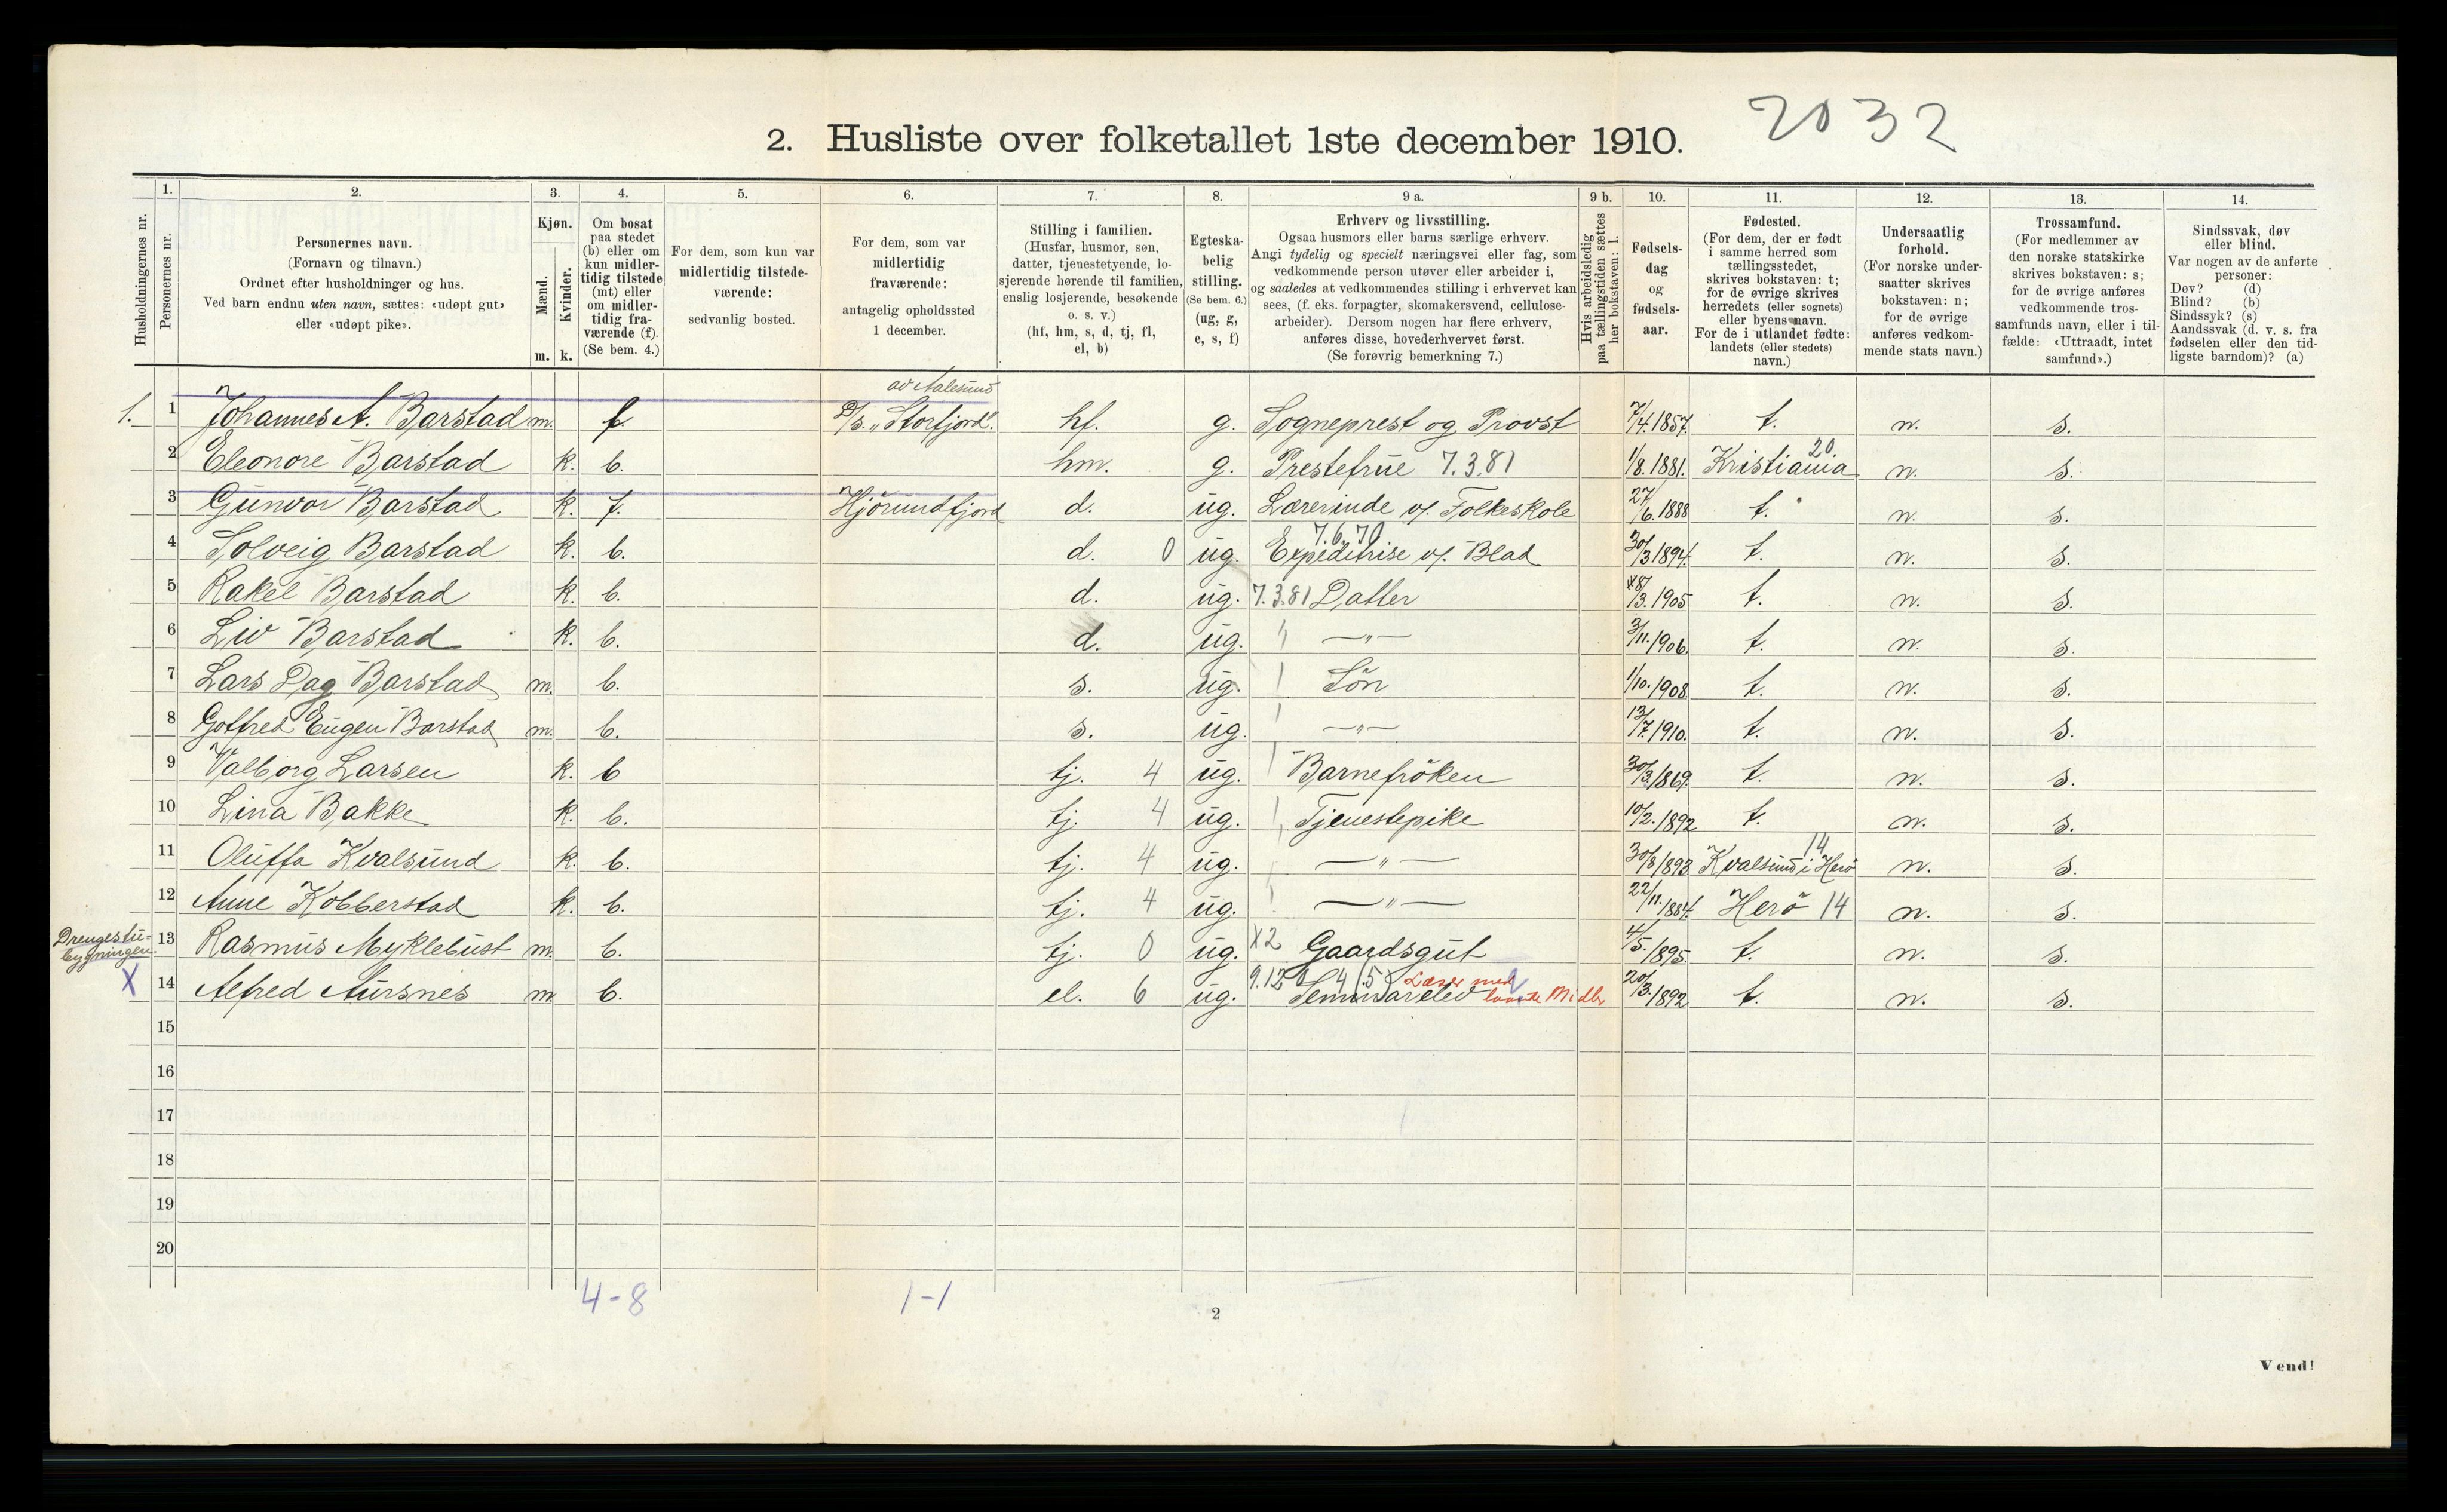 2032
2. Husliste over folketallet 1ste december 1910.
Husholdningernes nr.
1.
Personernes nr.
2.
Personernes navn.
(Fornavn og tilnavn.)
Ordnet efter husholdninger og hus.
Ved barn endnu uten navn, sættes: «udøpt gut»
eller «udøpt pike».
3.
Kjøn.
Mænd.
Kvinder.
m. k.
4.
Om bosat
paa stedet
(b) eller om
kun midler-
tidig tilstede
(mt) eller
om midler-
tidig fra-
værende (f).
(Se bem. 4.)
5.
For dem, som kun var
midlertidig tilstede-
værende:
sedvanlig bosted.
6.
For dem, som var
midlertidig
fraværende:
antagelig opholdssted
1 december.
7.
Stilling i familien.
(Husfar, husmor, søn,
datter, tjenestetyende, lo-
sjerende hørende til familien,
enslig losjerende, besøkende
o. s. v.)
(hf, hm, s, d, tj, fl,
el, b)
8.
Egteska-
belig
stilling.
(Se bem. 6.)
(ug, g,
e, s, f)
9 a.
Erhverv og livsstilling.
Ogsaa husmors eller barns særlige erhverv.
Angi tydelig og specielt næringsvei eller fag, som
vedkommende person utøver eller arbeider i,
og saaledes at vedkommendes stilling i erhvervet kan
sees, (f. eks. forpagter, skomakersvend, cellulose-
arbeider). Dersom nogen har flere erhverv,
anføres disse, hovederhvervet først.
(Se forøvrig bemerkning 7.)
9 b.
Hvis arbeidsledig
paa tællingstiden sættes
her bokstaven: l.
10.
Fødsels-
dag
og
fødsels-
aar.
11.
Fødested.
(For dem, der er født
i samme herred som
tællingsstedet,
skrives bokstaven: t;
for de øvrige skrives
herredets (eller sognets)
eller byens navn.
For de i utlandet fødte:
landets (eller stedets)
navn.)
12.
Undersaatlig
forhold.
(For norske under-
saatter skrives
bokstaven: n;
for de øvrige
anføres vedkom-
mende stats navn.)
13.
Trossamfund.
(For medlemmer av
den norske statskirke
skrives bokstaven: s;
for de øvrige anføres
vedkommende tros-
samfunds navn, eller i til-
fælde: «Uttraadt, intet
samfund».)
14.
Sindssvak, døv
eller blind.
Var nogen av de anførte
personer:
Døv? (d)
Blind? (b)
Sindssyk? (s)
Aandssvak (d. v. s. fra
fødselen eller den tid-
ligste barndom)? (a)
av Aalesund
1. 1 Johannes A. Barstad m. f. D/s. "Storfjord". hf. g. Sogneprest og Provst 7/4.1857. t. n. s.
2 Eleonore Barstad k. b. hm. g. Prestefrue 7.3.81 1/8.1881. Kristiania 20. n. s.
3 Gunvor Barstad k. f. Hjörundfjord d. ug. Lærerinde v. Folkeskole 27/6.1888 t. n. s.
7.6.70
4 Solveig Barstad k. b. d. 0 ug. Expeditrise v. Blad 30/3 1894. t. n. s.
5 Rakel Barstad k. b. d. ug. 7.3.81 Datter /3.1905 t. n. s.
6 Liv Barstad k. b. d. ug. " —"— 3/11.1906. t. n. s.
7 Lars Dag Barstad m. b. s. ug. Sön 1/10.1908. t. n. s.
8 Gotfred Eugen Barstad m. b. s. ug. —"— 13/7.1910. t. n. s.
9 Valborg Larsen k. b tj. 4 ug. Barnefröken 30/3.1869. t. n. s.
10 Lina Bakke k. b. tj. 4 ug. Tjenestepike 10/2.1892 t. n. s.
11 Oluffa Kvalsund k. b. tj. 4 ug. —"— 30/8 1893 Kvalsund i Herö 14 n. s.
12 Anne Kobberstad k. b. tj. 4 ug. —"— 22/11.1884. Herö 14 n. s.
Drengestu-
bygningen.
13 Rasmus Myklebust m. b. tj. 0 ug. X2 Gaardsgut 4/5.1895. t. n. s.
X 14 Alfred Aursnes m b. el. 6 ug. 9.12 Seminarelev Læser med laante Midler 20/3.1892 t. n. s.
15
16
17
18
19
20
4-8 1-1
2
Vend!